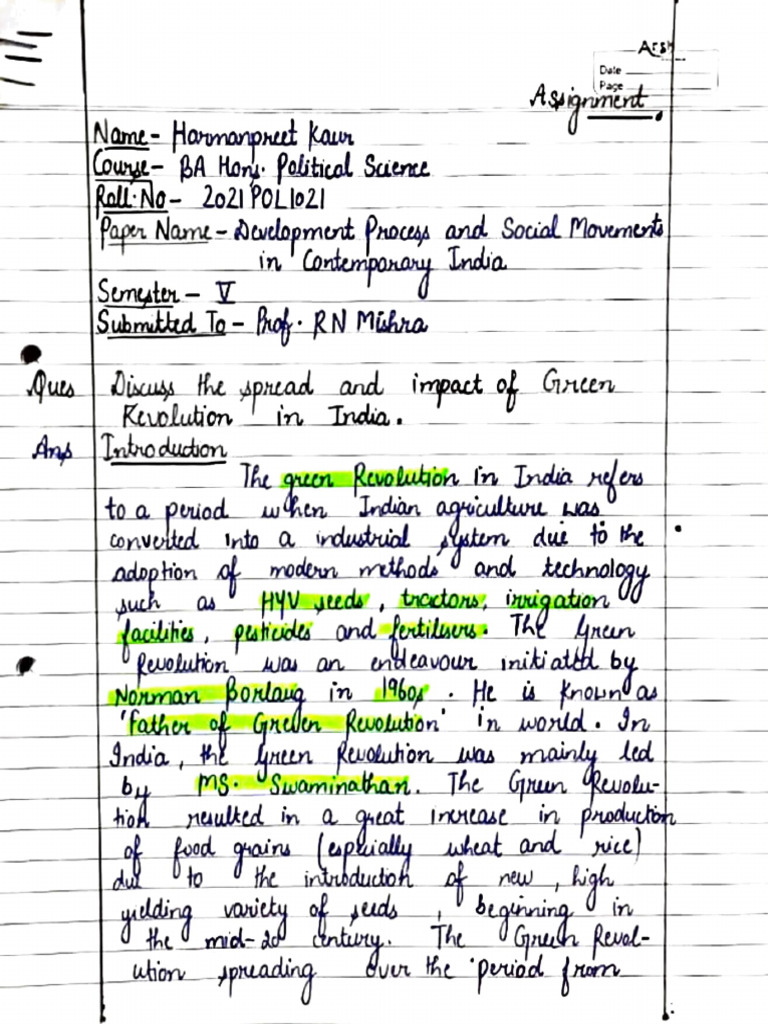 Date
Page
Assignment.
Name- Harmanpreet Kaur
Course- BA Hons. Political Science
Roll.No- 2021POL1021
Paper Name- Development Process and Social Movements
in Contemporary India
Semester- V
Submitted To- Prof. RN Mishra
Ques Discuss the spread and impact of Green
Revolution in India.
Ans Introduction
The green Revolution in India refers
to a period when Indian agriculture was
converted into a industrial system due to the
adoption of modern methods and technology
such as HYV seeds, tractors, irrigation
facilities, pesticides and fertilisers. The Green
Revolution was an endeavour initiated by
Norman Borlaug in 1960s. He is known as
'father of Green Revolution' in world. In
India, the Green Revolution was mainly led
by MS. Swaminathan. The Green Revolu-
tion resulted in a great increase in production
of food grains (especially wheat and rice)
due to the introduction of new, high
yielding variety of seeds, beginning in
the mid-20 century. The Green Revol-
ution spreading over the period from